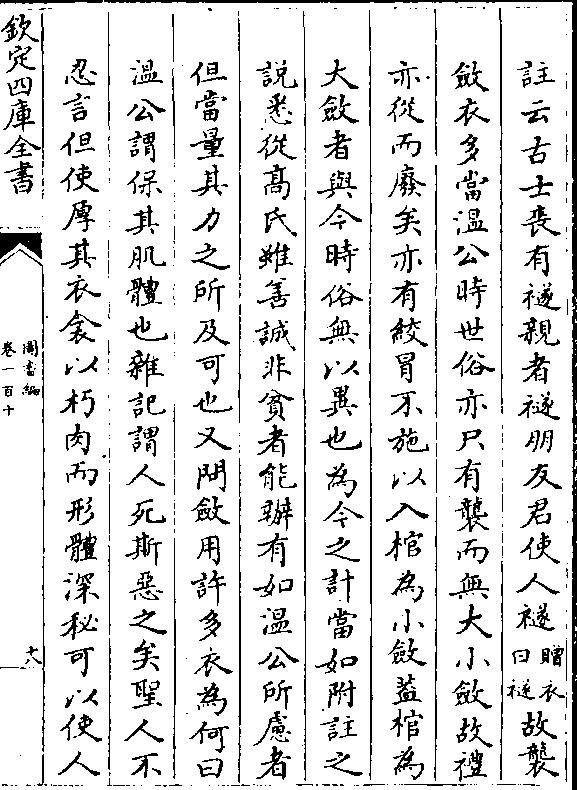 註云古士喪有襚親者襚朋友君使人襚贈衣曰襚故襲
斂衣多當溫公時世俗亦只有襲而無大小斂故禮
亦從而廢矣亦有絞冒不施以入棺為小斂蓋棺為
大斂者與今時俗無以異也為今之計當如附註之
說悉從高氏雖善誠非貧者能辦有如溫公所慮者
但當量其力之所及可也又問斂用許多衣為何曰
溫公謂保其肌體也雜記謂人死斯惡之矣聖人不
忍言但使厚其衣衾以朽肉而形體深秘可以使人
欽定四庫全書
圖書編
卷一百十
十八